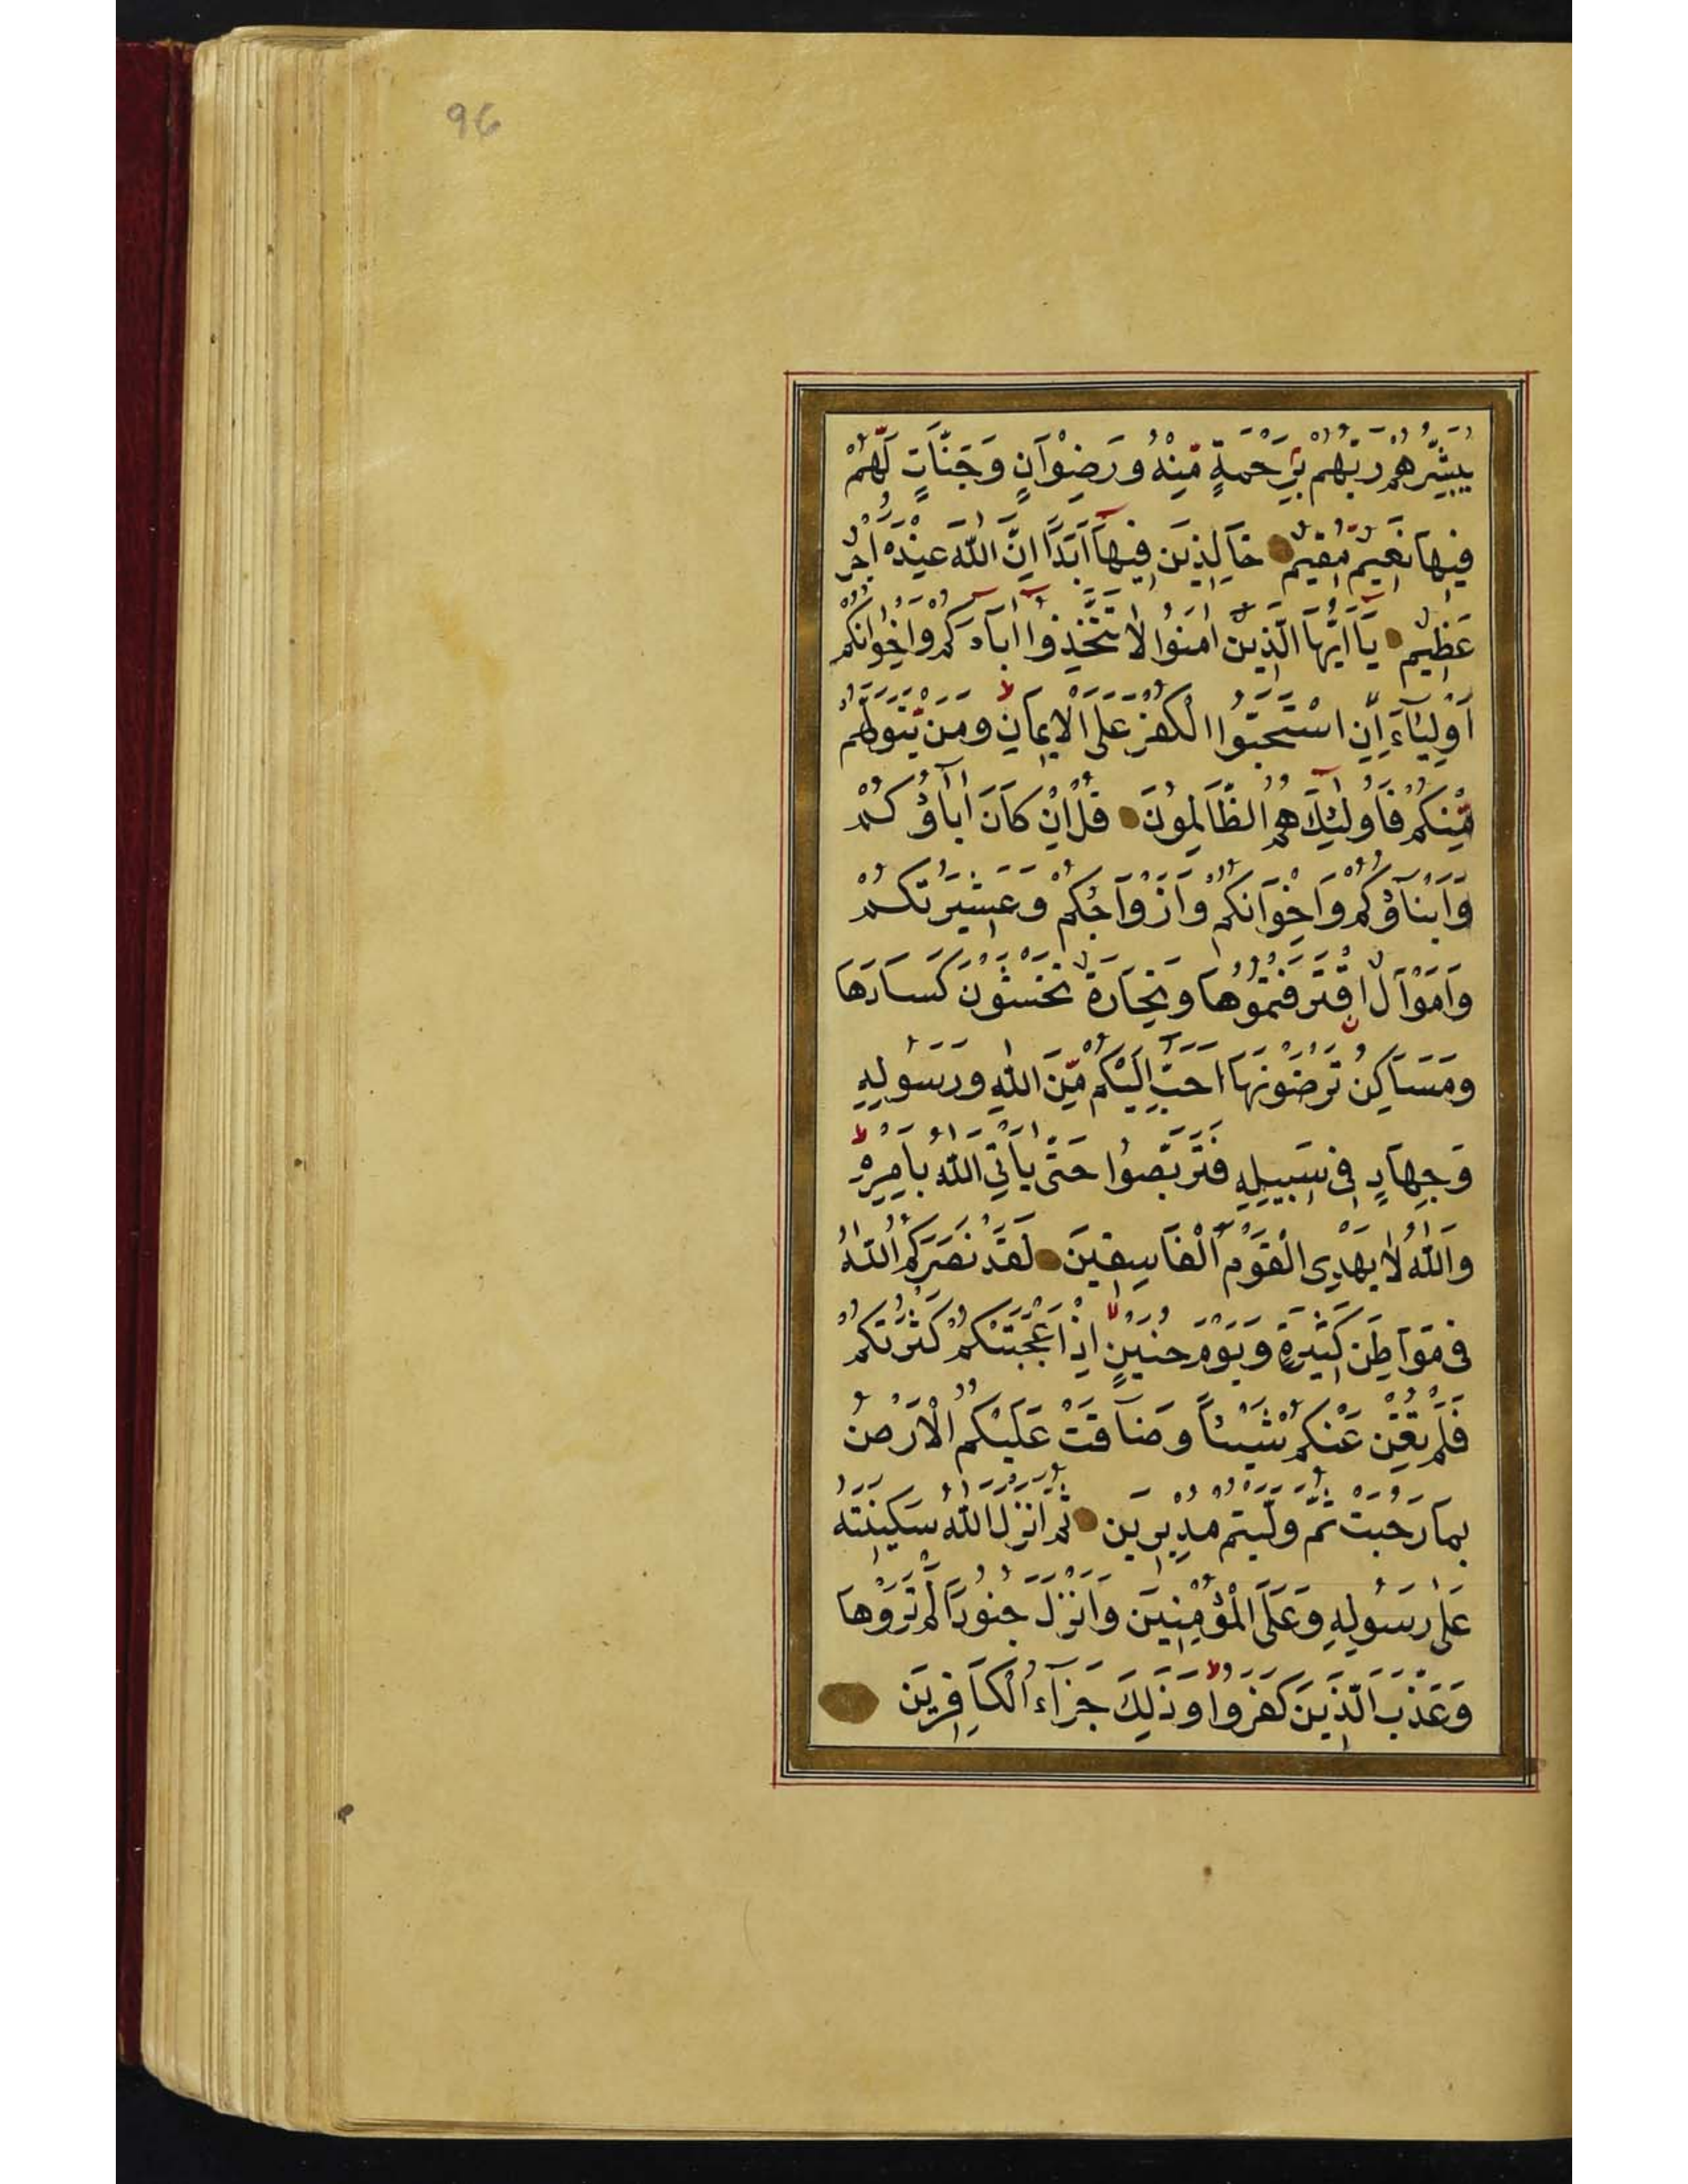 96
يُبَشِّرُهُمْ رَبُّهُمْ بِرَحْمَةٍ مِّنْهُ وَرِضْوَانٍ وَجَنَّاتٍ لَّهُمْ
فِيهَا نَعِيمٌ مُّقِيمٌ خَالِدِينَ فِيهَا أَبَدًا اِنَّ اللّٰهَ عِنْدَهُ اَجْرٌ
عَظِيمٌ يَا اَيُّهَا الَّذِينَ اٰمَنُوا لَا تَتَّخِذُوا اٰبَآءَكُمْ وَاِخْوَانَكُمْ
اَوْلِيَآءَ اِنِ اسْتَحَبُّوا الْكُفْرَ عَلَى الْاِيمَانِ وَمَنْ يَتَوَلَّهُمْ
مِّنْكُمْ فَاُولٰئِكَ هُمُ الظَّالِمُونَ قُلْ اِنْ كَانَ اٰبَاؤُكُمْ
وَاَبْنَاؤُكُمْ وَاِخْوَانُكُمْ وَاَزْوَاجُكُمْ وَعَشِيرَتُكُمْ
وَاَمْوَالٌ اقْتَرَفْتُمُوهَا وَتِجَارَةٌ تَخْشَوْنَ كَسَادَهَا
وَمَسَاكِنُ تَرْضَوْنَهَا اَحَبَّ اِلَيْكُمْ مِّنَ اللّٰهِ وَرَسُولِهِ
وَجِهَادٍ فِى سَبِيلِهِ فَتَرَبَّصُوا حَتّٰى يَأْتِيَ اللّٰهُ بِاَمْرِهِ
وَاللّٰهُ لَا يَهْدِى الْقَوْمَ الْفَاسِقِينَ لَقَدْ نَصَرَكُمُ اللّٰهُ
فِى مَوَاطِنَ كَثِيرَةٍ وَيَوْمَ حُنَيْنٍ اِذْ اَعْجَبَتْكُمْ كَثْرَتُكُمْ
فَلَمْ تُغْنِ عَنْكُمْ شَيْئاً وَضَاقَتْ عَلَيْكُمُ الْاَرْضُ
بِمَا رَحُبَتْ ثُمَّ وَلَّيْتُمْ مُدْبِرِينَ ثُمَّ اَنْزَلَ اللّٰهُ سَكِينَتَهُ
عَلٰى رَسُولِهِ وَعَلَى الْمُؤْمِنِينَ وَاَنْزَلَ جُنُودًا لَمْ تَرَوْهَا
وَعَذَّبَ الَّذِينَ كَفَرُوا وَذٰلِكَ جَزَآءُ الْكَافِرِينَ